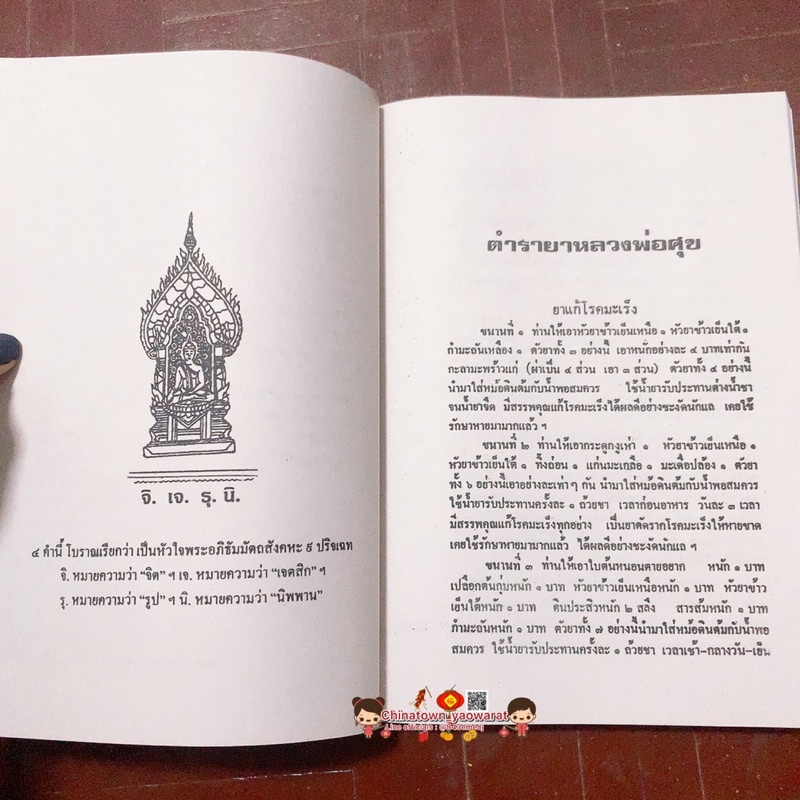 จิ. เจ. รุ. นิ.
๔ คำนี้ โบราณเรียกว่า เป็นหัวใจพระอภิธัมมัตถสังคหะ ๙ ปริจเฉท
จิ. หมายความว่า “จิต” ฯ เจ. หมายความว่า “เจตสิก” ฯ
รุ. หมายความว่า “รูป” ฯ นิ. หมายความว่า “นิพพาน”
ตำรายาหลวงพ่อศุข
ยาแก้โรคมะเร็ง
ขนานที่ ๑ ท่านให้เอาหัวยาข้าวเย็นเหนือ ๑ หัวยาข้าวเย็นใต้ ๑
กำมะถันเหลือง ๑ ตัวยาทั้ง ๓ อย่างนี้ เอาหนักอย่างละ ๔ บาทเท่ากัน
กะลามะพร้าวแก่ (ผ่าเป็น ๔ ส่วน เอา ๓ ส่วน) ตัวยาทั้ง ๔ อย่างนี้
นำมาใส่หม้อดินต้มกับน้ำพอสมควร ใช้น้ำยารับประทานต่างน้ำชา
จนน้ำยาจืด มีสรรพคุณแก้โรคมะเร็งได้ผลดีอย่างชะงัดนักแล เคยใช้
รักษาหายมามากแล้ว ฯ
ขนานที่ ๒ ท่านให้เอากระดูกงูเห่า ๑ หัวยาข้าวเย็นเหนือ ๑
หัวยาข้าวเย็นใต้ ๑ ทิ้งถ่อน ๑ แก่นมะเกลือ ๑ มะเดื่อปล้อง ๑ ตัวยา
ทั้ง ๖ อย่างนี้เอาอย่างละเท่า ๆ กัน นำมาใส่หม้อดินต้มกับน้ำพอสมควร
ใช้น้ำยารับประทานครั้งละ ๑ ถ้วยชา เวลาก่อนอาหาร วันละ ๓ เวลา
มีสรรพคุณแก้โรคมะเร็งทุกอย่าง เป็นยาตัดรากโรคมะเร็งให้หายขาด
เคยใช้รักษาหายมามากแล้ว ได้ผลดีอย่างชะงัดนักแล ฯ
ขนานที่ ๓ ท่านให้เอาใบต้นหนอนตายอยาก หนัก ๑ บาท
เปลือกต้นกุ่มหนัก ๑ บาท หัวยาข้าวเย็นเหนือหนัก ๑ บาท หัวยาข้าว
เย็นใต้หนัก ๑ บาท ดินประสิวหนัก ๒ สลึง สารส้มหนัก ๑ บาท
กำมะถันหนัก ๑ บาท ตัวยาทั้ง ๗ อย่างนี้นำมาใส่หม้อดินต้มกับน้ำพอ
สมควร ใช้น้ำยารับประทานครั้งละ ๑ ถ้วยชา เวลาเช้า-กลางวัน-เย็น
Chinatown yaowarat
Line officials :